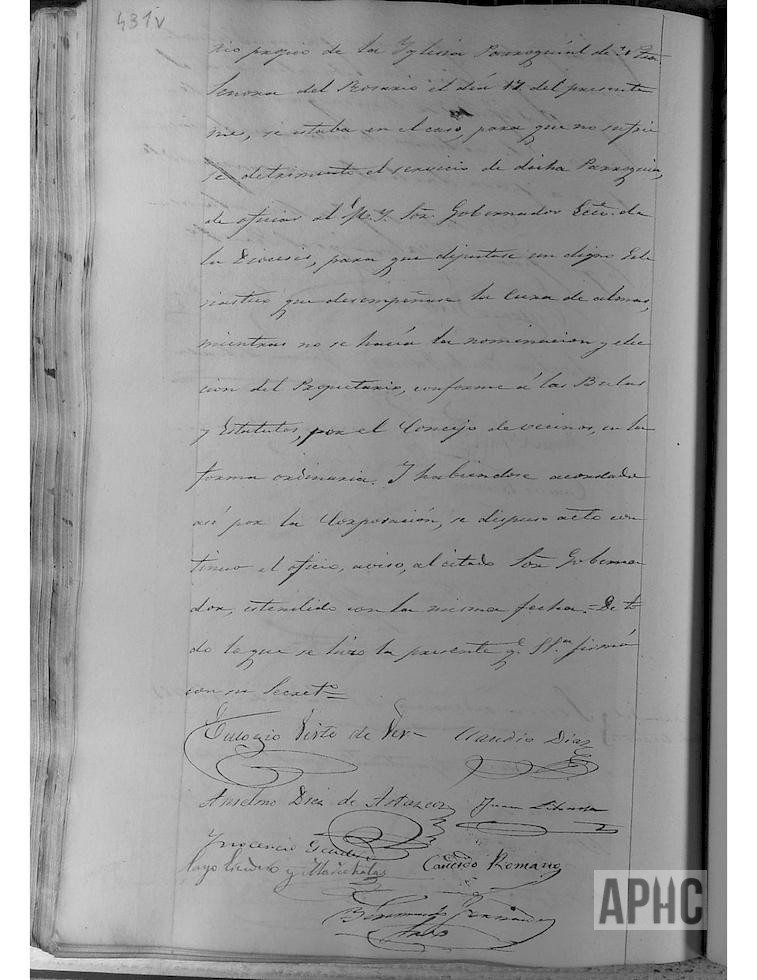 431v
rio propio de la Yglesia Parroquial de Ntra
Señora del Rosario el día 12 del presente
mes, se estaba en el caso, para que no sufrie
se detrimento el servicio de dicha Parroquia,
de oficiar al M. Y. Sor. Gobernador Ecco. de
la Diócesis, para que diputase un digno Ecle
siástico que desempeñase la Cura de almas,
mientras no se hacía la nominacion y elec
cion del Propietario, conforme á las Bulas
y Estatutos, por el Concejo de vecinos, en la
forma ordinaria. Y habiendose acordado
así por la Corporación, se dispuso acto con
tinuo el oficio, aviso, al citado Sor Goberna
dor, estendido con la misma fecha.= De to
do lo que se hizo la presente q. S.Sa. firmó
con su Secreto=
Eulogio Claudio Diaz
Anselmo Diez de Juan
Ynocencio
Candido Romano